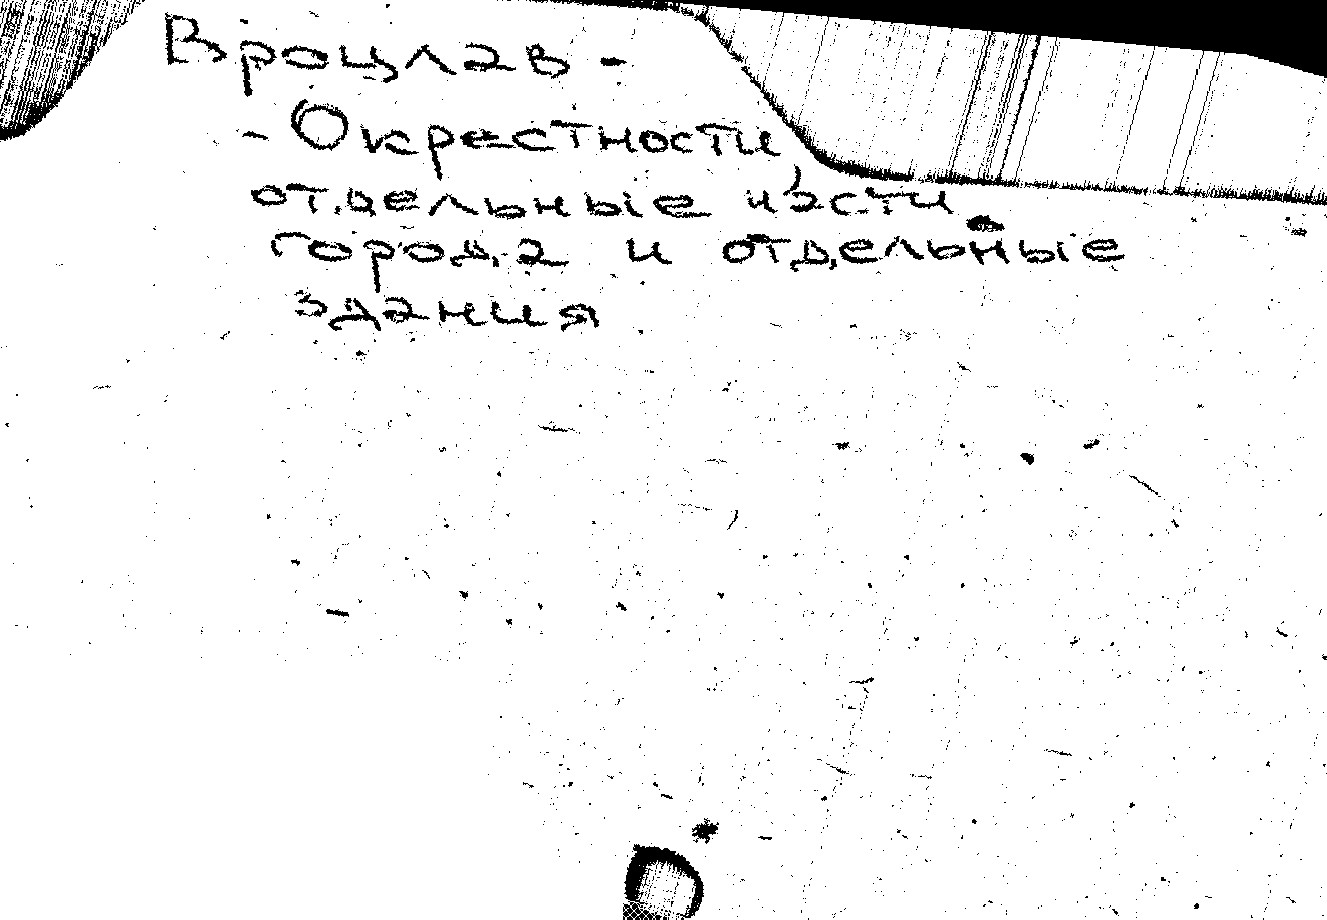 Вроцлав -
- Окрестности,
отдельные части
города и отдельные
здания